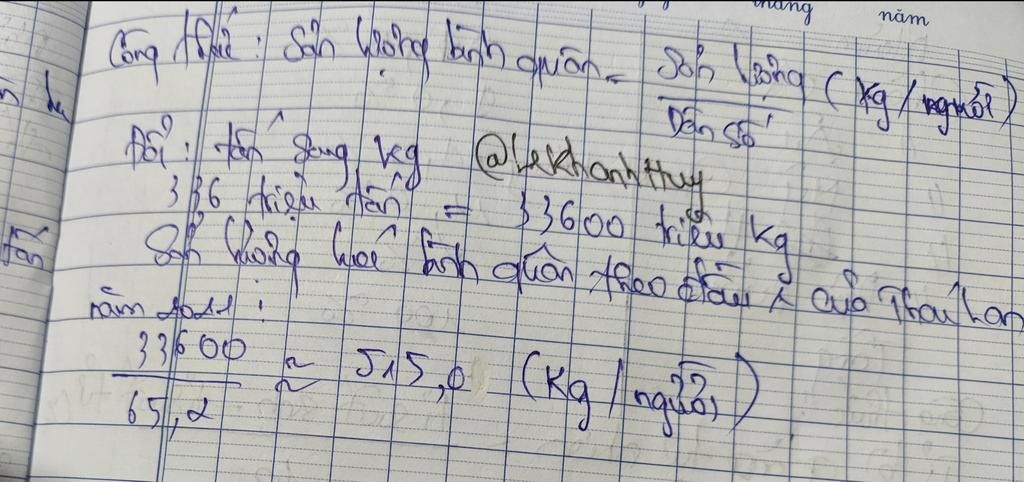 tháng năm
Công thức: Sản lượng bình quân = Sản lượng (kg/người)
Dân số
Đổi: tấn sang kg @lekhanhthuy
336 triệu tấn = 33600 triệu kg
Sản lượng lúa bình quân theo đầu ng của Thái Lan
năm 2021:
33600
≈ 515,0 (kg/người)
65,2
tấn